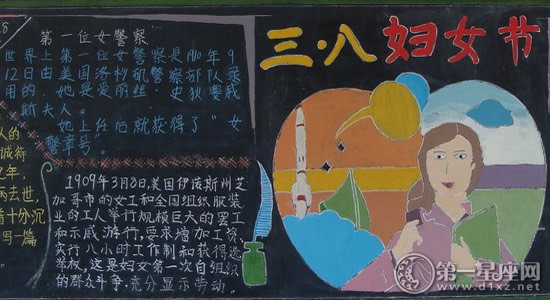 8
三·八妇女节
第一位女警察
世界上第一位女警察是1910年9
12日由美国洛杉矶警察部队录
用的,她是爱丽丝·史狄
斯夫人。
她上任后就获得了“女
警
人的
诚待
年,
病去世,
十分沉
写一篇
1909年3月8日,美国伊诺斯州芝
加哥市的女工和全国组织服装
业的工人举行规模巨大的罢工
和示威游行,要求增加工资,
实行八小时工作制和获得选
举权,这是妇女第一次自组织
的群众斗争,充分显示劳动。
第一星座网
www.d1xz.net